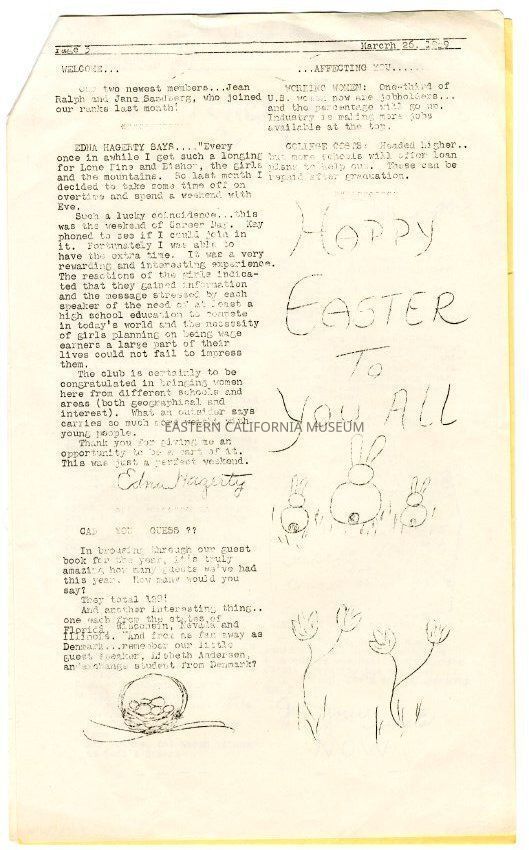 Page 3
WELCOME...
Our two newest members...Jean
Ralph and Jane Sandberg, who joined
our ranks last month!
EDNA HAGERTY SAYS...."Every
once in awhile I get such a longing
for Lone Pine and Bishop, the girls
and the mountains. So last month I
decided to take some time off on
overtime and spend a weekend with
Eve.
Such a lucky coincidence...this
was the weekend of Career Day. Kay
phoned to see if I could join in
it. Fortunately I was able to
have the extra time. It was a very
rewarding and interesting experience.
The reactions of the girls indica-
ted that they gained information
and the message stressed by each
speaker of the need of at least a
high school education to compete
in today's world and the necessity
of girls planning on being wage
earners a large part of their
lives could not fail to impress
them.
The club is certainly to be
congratulated in bringing women
here from different schools and
areas (both geographical and
interest). What an outsider says
carries so much more weight with
young people.
Thank you for giving me an
opportunity to be a part of it.
This was just a perfect weekend.
Edna Hagerty
CAN YOU GUESS ??
In browsing through our guest
book for the year, it's truly
amazing how many guests we've had
this year. How many would you
say?
They total
And another interesting thing..
one each from the states of
Florida, Wisconsin, Nevada and
Illinois. And from as far away as
Denmark...remember our little
guest speaker, Lisbeth Andersen,
an exchange student from Denmark?
March 26,
...AFFECTING YOU......
WORKING WOMEN: One-third of
U.S. women now are jobholders...
and the percentage will go up.
Industry is making more jobs
available at the top.
COLLEGE COSTS: Headed higher..
but more schools will offer loan
plans to help out. These can be
repaid after graduation.
HAPPY
EASTER
TO
YOU ALL
EASTERN CALIFORNIA MUSEUM